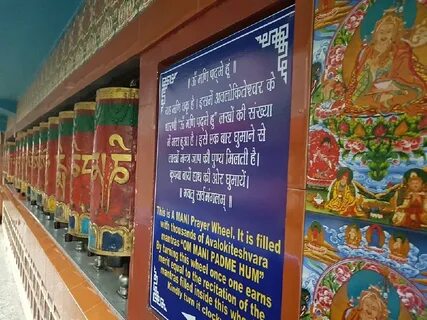 ॥ ॐ मणि पद्मे हुं ॥
यह मणि चक्र है । इसमें अवलोकितेश्वर के
धारणी "ॐ मणि पद्मे हुं" लाखों की संख्या
में भरा हुआ है । इसे एक बार घुमाने से
लाखों मन्त्र जाप की पुण्य मिलती है ।
कृपया बायें से दायें की ओर घुमायें ।
॥ भवतु सर्वमंगलम् ॥
This is A MANI Prayer Wheel. It is filled
with thousands of Avalokiteshvara
Mantras "OM MANI PADME HUM"
By turning this wheel once one earns
merit equal to the recitation of the
mantra filled inside this whe
Kindly turn it clockw